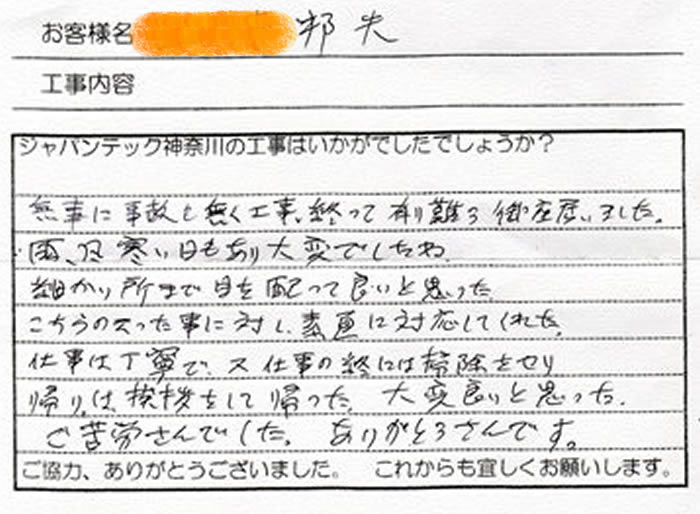 お客様名 邦夫
工事内容
ジャパンテック神奈川の工事はいかがでしたでしょうか?
無事に事故も無く工事、終って有り難う御座居ました。
雨、又寒い日もあり大変でしたね
細かい所まで目を配って良いと思った
こちらの云った事に対し素直に対応してくれた
仕事は丁寧で、又仕事の終には掃除をせり
帰りは挨拶をして帰った 大変良いと思った.
ご苦労さんでした。 ありがとうさんです。
ご協力、ありがとうございました。 これからも宜しくお願いします。